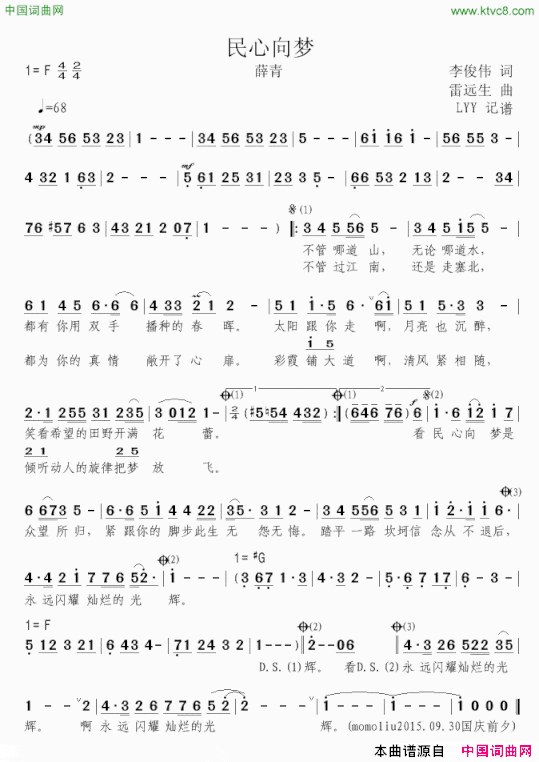 中国词曲网
www.ktvc8.com
民心向梦
1= F 4/4 2/4
薛青
李俊伟 词
雷远生 曲
♩=68
LYY 记谱
mp
(34 56 53 23 | 1 - - - | 34 56 53 23 | 5 - - - | 61 16 1 - | 56 55 3 -
mf
4 32 1 63 | 2 - - - | 5 61 25 31 | 23 3 5 - | 66 53 2 13 | 2 - - 34
76 #57 6 3 | 43 21 2 07 | 1 - - - ) ‖: 3 4 5 56 5 - | 3 4 5 15 5 -
(1)
不管 哪道 山， 无论 哪道水，
不管 过江 南， 还是 走塞北，
6 1 4 5 6·6 6 | 4 33 21 2 - | 5 1 1·5 6 - 61 | 5 1 4 5 6 -
都有 你用 双手 播种的 春 晖。 太阳 跟你 走 啊，月亮 也 沉醉，
1 5
都为 你的 真情 敞开了 心 扉。 彩霞 铺大道 啊，清风 紧 相随，
1 2
2·1 255 31 235 | 3 012 1 - | 2/4 (#5 #54 432) :‖ (646 76) 6 | 1·6 12 1 7
f (2)
笑看希望的田野开满 花 蕾。 看 民 心向 梦是
2 1 2 5
倾听动人的旋律把梦 放 飞。
6 673 5 - | 6·6 51 4 422 | 35· 31 2 - | 5·3 2 31 51 | 2·2 1 1 6 -
(3)
众望 所归， 紧 跟你的 脚步此生 无 怨无悔。 踏平 一路 坎坷信 念从 不 退后，
(2)
1= #G
4·4 21 776 52· | 1 - - - | (3 67 1· 3 | 4·3 2 - | 3 67 1· 3 | 4·3 2 -
永 远闪耀 灿烂的 光 辉。
1= F
(2)
(3)
5 12 3 21 | 6 43 4 - | 71 24 3 2 | 1 - - -) ‖ 2 - - 06 ‖ 4·3 26 522 35
D.S.(1)辉。 看D.S.(2)永 远闪耀灿烂的光
1 - - 2 | 4·3 26 776 52 | 2 - - - | 1 - - - | 1 - - - | 1 0 0 0 ‖
辉。 啊 永 远 闪耀灿烂的光 辉。(momoliu2015.09.30国庆前夕)
本曲谱源自 中国词曲网